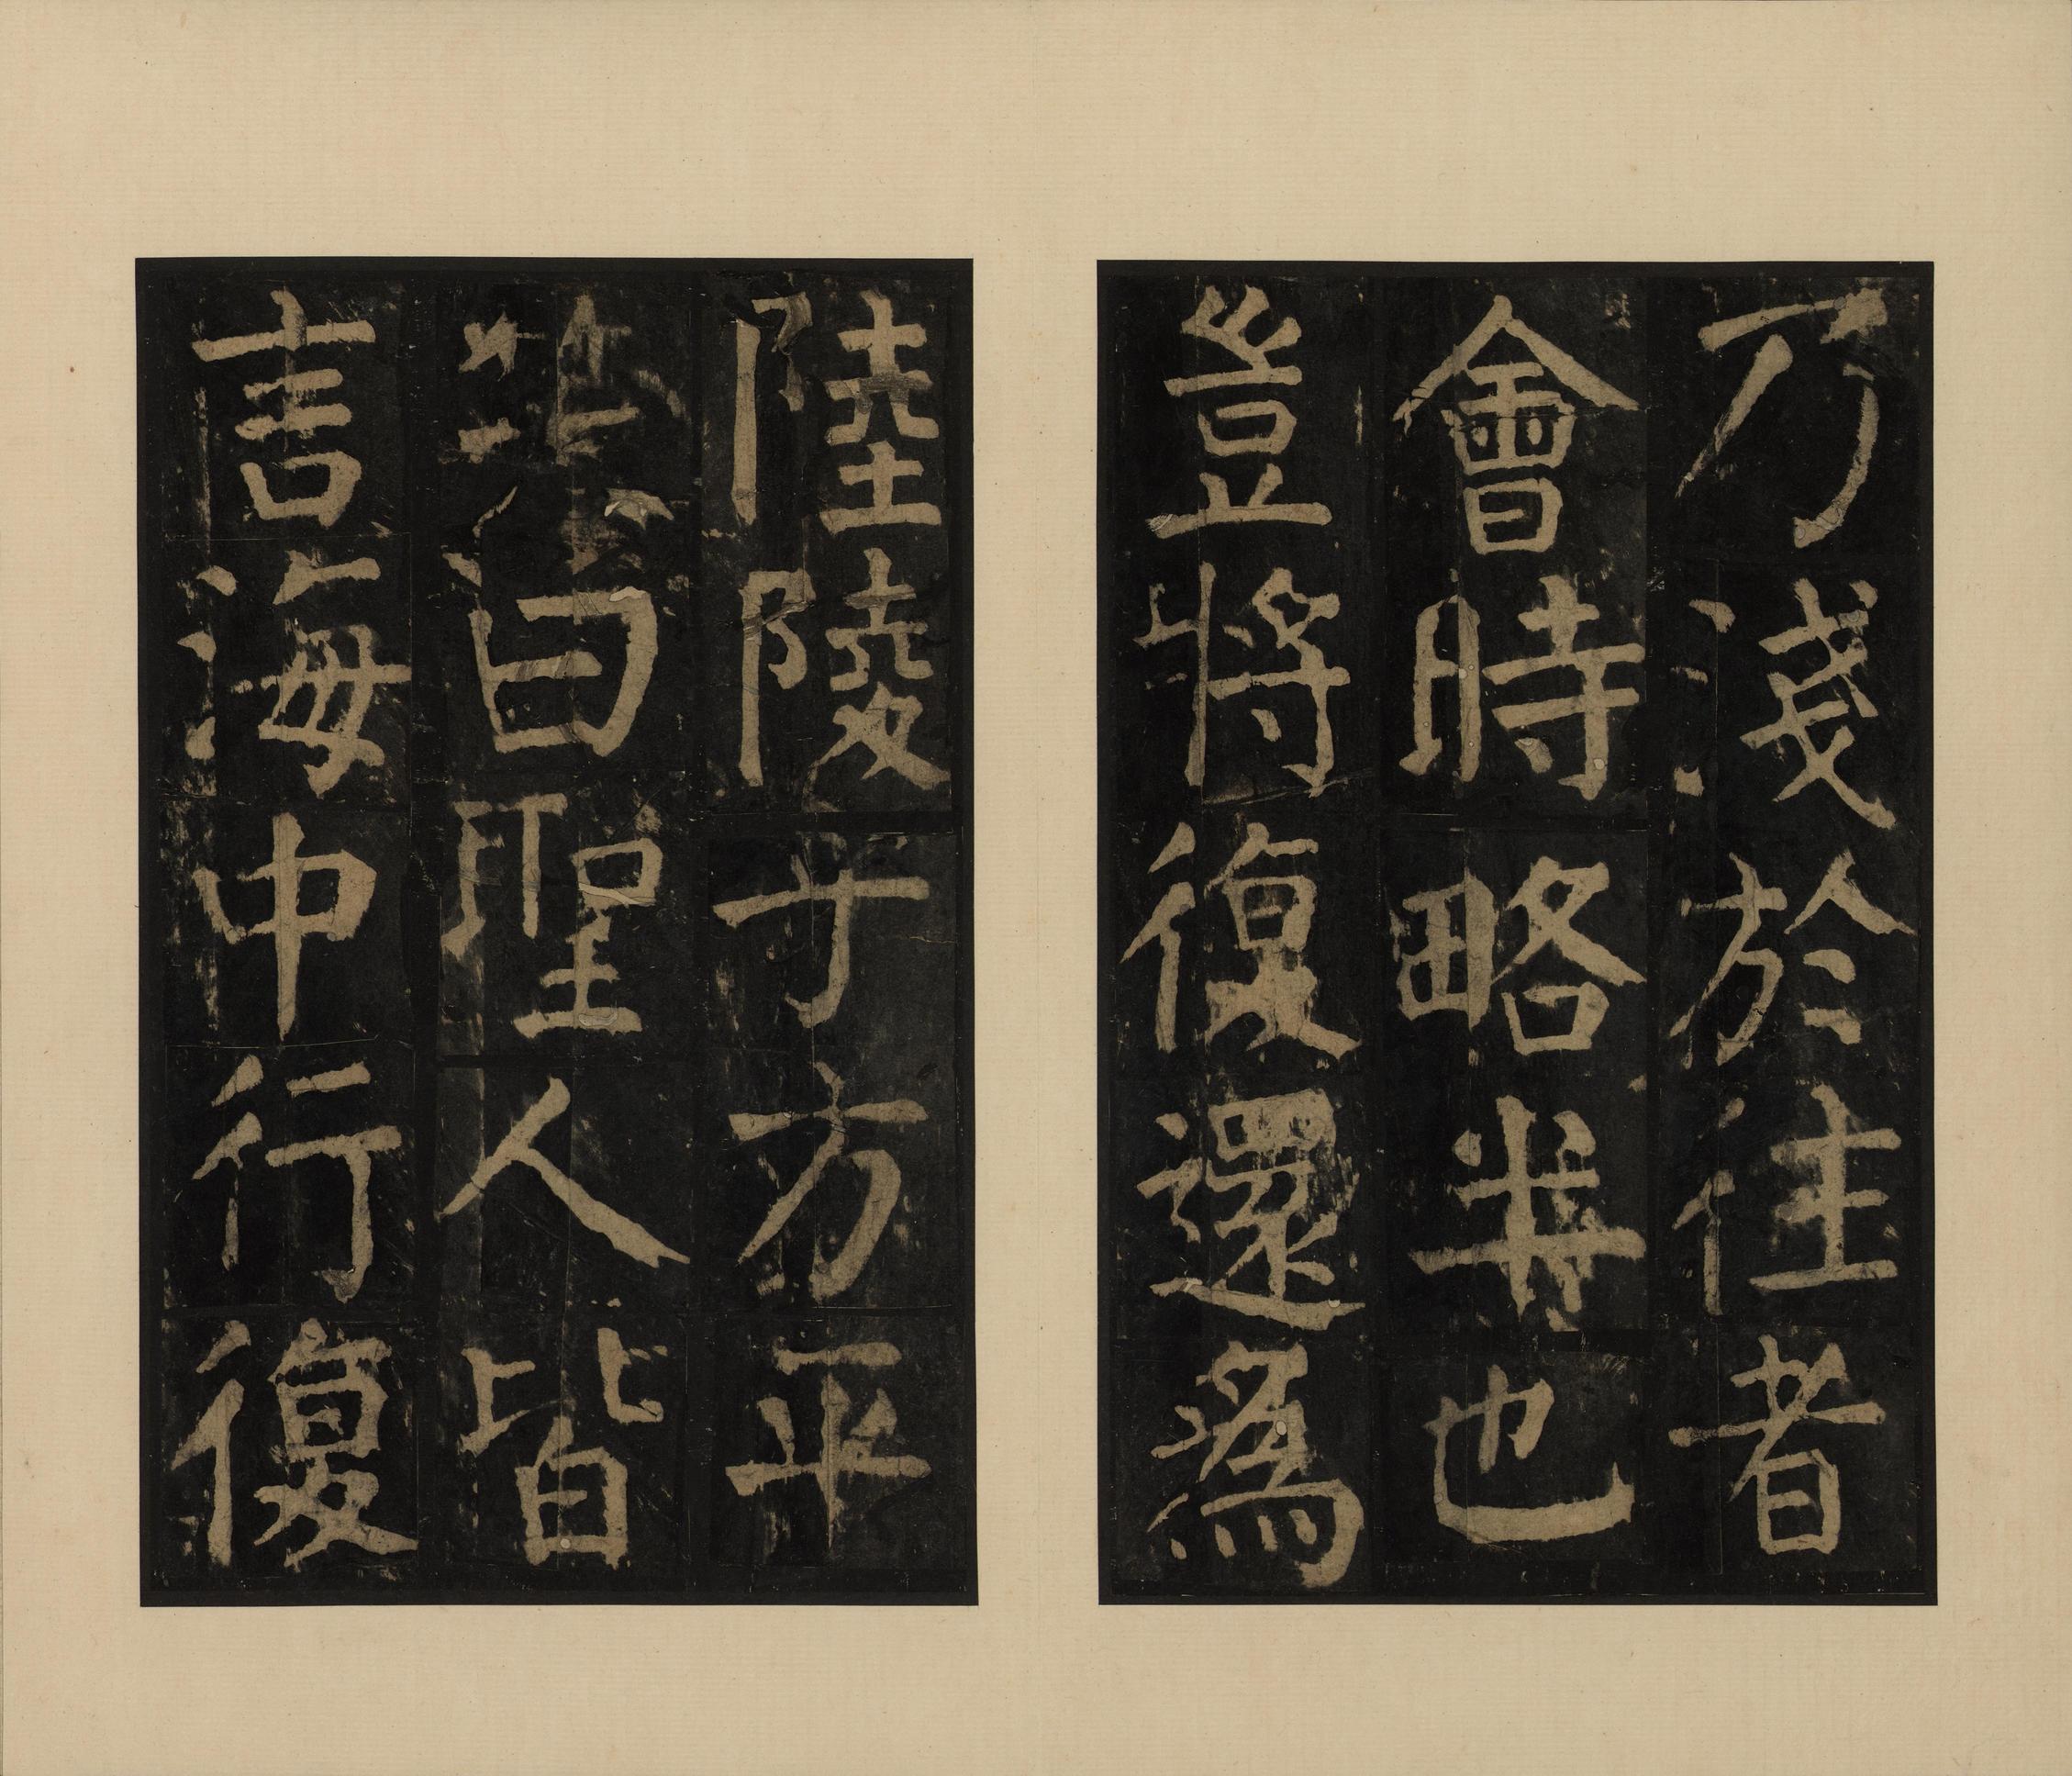 乃淺於往者
會時略半也
豈將復還爲
陸陵乎方平
笑曰聖人皆
言海中行復